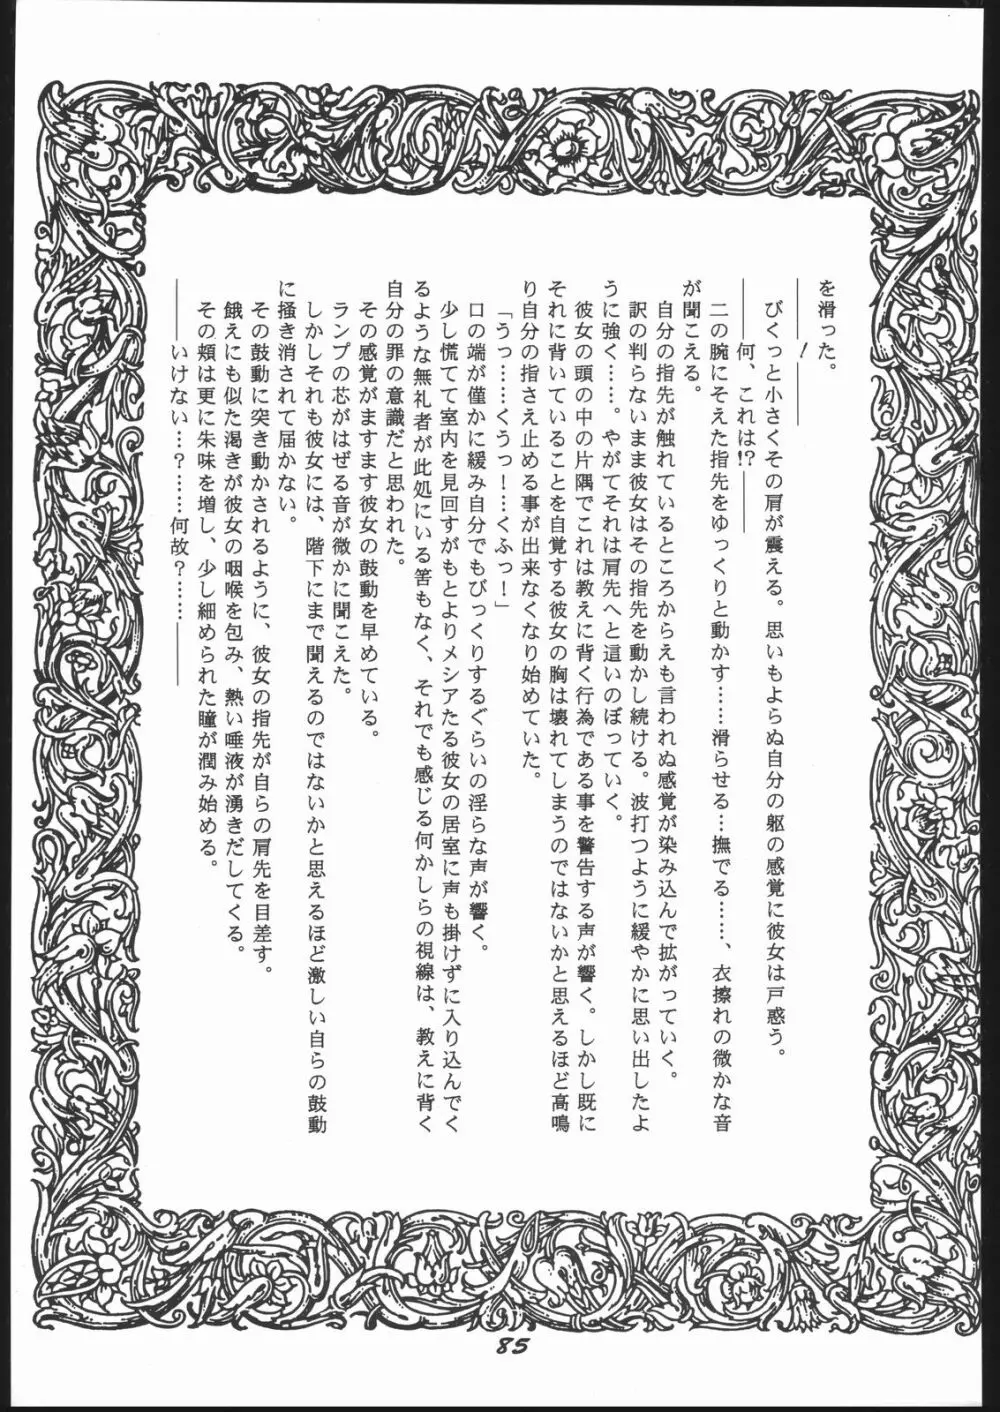 を滑った。
――――！――――
びくっと小さくその肩が震える。思いもよらぬ自分の躯の感覚に彼女は戸惑う。
――何、これは!?――
二の腕にそえた指先をゆっくりと動かす……滑らせる…撫でる……、衣擦れの微かな音
が聞こえる。
自分の指先が触れているところからえも言われぬ感覚が染み込んで拡がっていく。
訳の判らないまま彼女はその指先を動かし続ける。波打つように緩やかに思い出したよ
うに強く……。やがてそれは肩先へと這いのぼっていく。
彼女の頭の中の片隅でこれは教えに背く行為である事を警告する声が響く。しかし既に
それに背いていることを自覚する彼女の胸は壊れてしまうのではないかと思えるほど高鳴
り自分の指さえ止める事が出来なくなり始めていた。
「うっ……くうっ！…くふっ！」
口の端が僅かに緩み自分でもびっくりするぐらいの淫らな声が響く。
少し慌てて室内を見回すがもとよりメシアたる彼女の居室に声も掛けずに入り込んでく
るような無礼者が此処にいる筈もなく、それでも感じる何かしらの視線は、教えに背く
自分の罪の意識だと思われた。
その感覚がますます彼女の鼓動を早めている。
ランプの芯がはぜる音が微かに聞こえた。
しかしそれも彼女には、階下にまで聞えるのではないかと思えるほど激しい自らの鼓動
に掻き消されて届かない。
その鼓動に突き動かされるように、彼女の指先が自らの肩先を目差す。
餓えにも似た渇きが彼女の咽喉を包み、熱い唾液が湧きだしてくる。
その頬は更に朱味を増し、少し細められた瞳が潤み始める。
――いけない…？……何故？……――
85